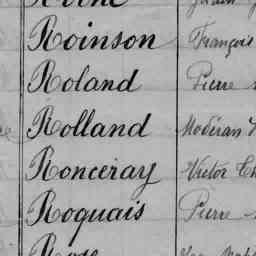 Roinson François
Roland Pierre
Rolland Modéran
Ronceray Victor
Roquais Pierre